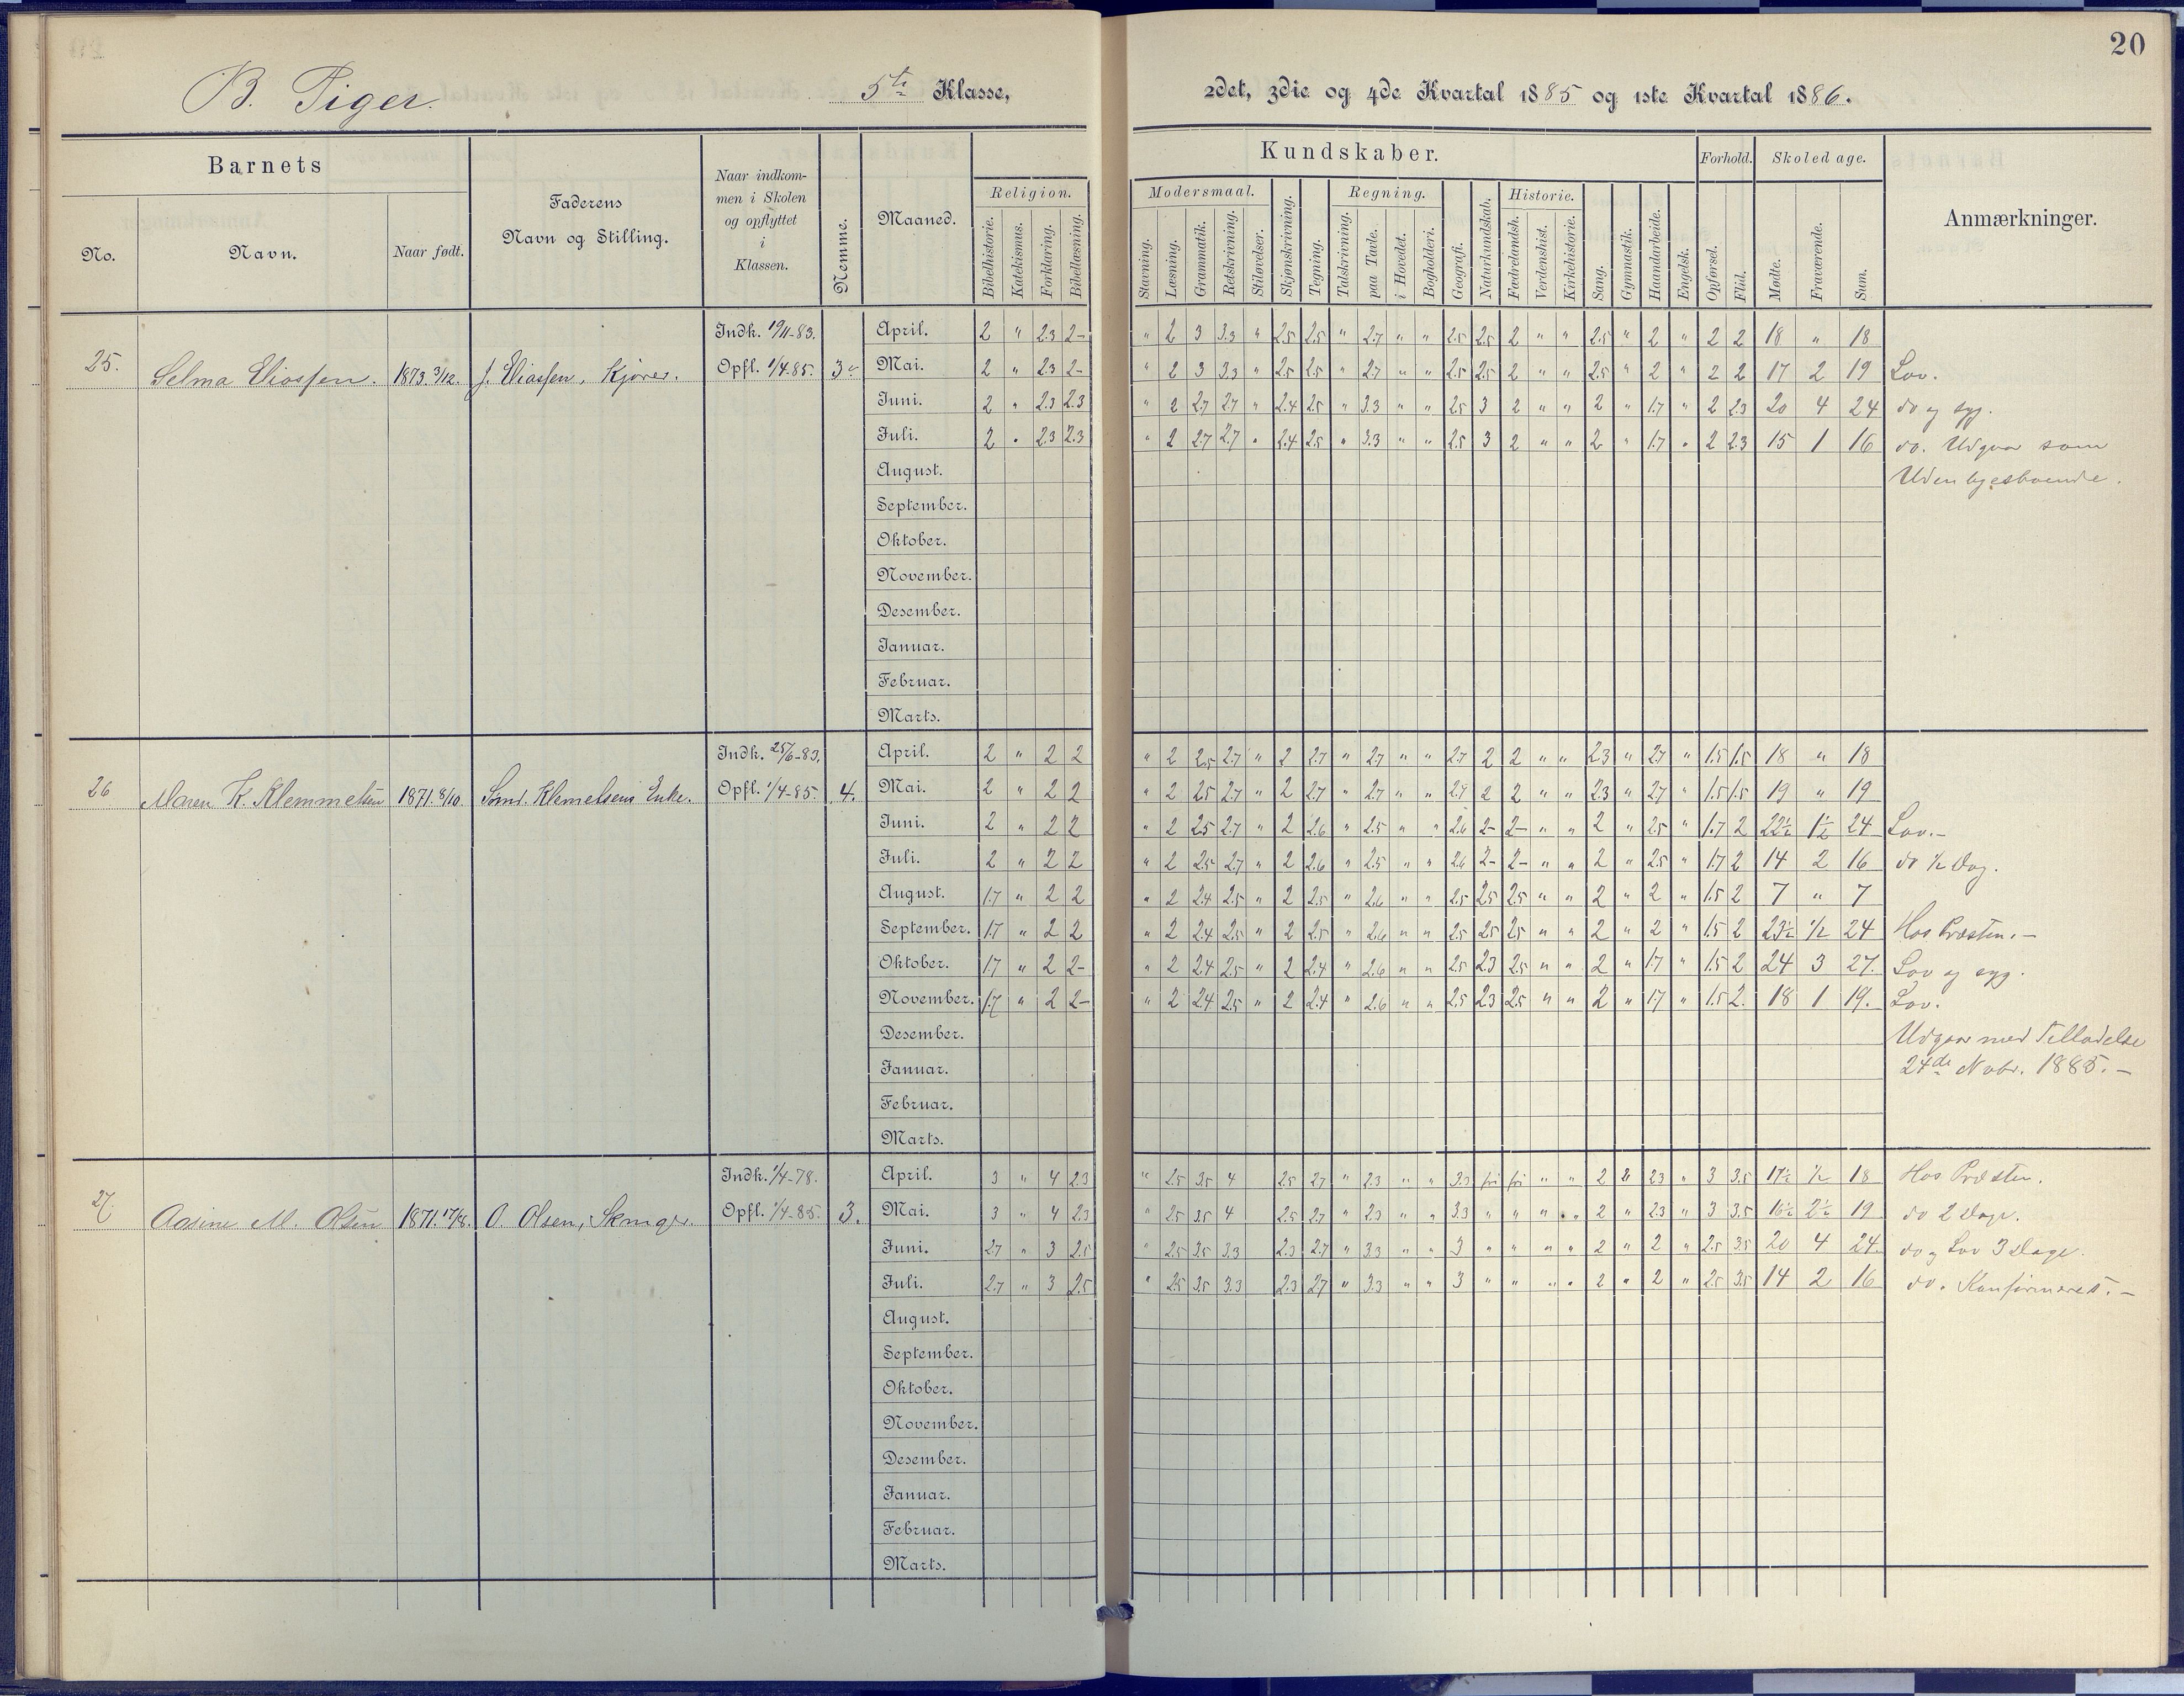 20
B. Piger. 5te Klasse, 2det, 3die og 4de Kvartal 1885 og 1ste Kvartal 1886.
Barnets
No.
Navn.
Naar født.
Faderens
Navn og Stilling.
Naar indkom-
men i Skolen
og opflyttet
i
Klassen.
Nemme.
Maaned.
Kundskaber.
Religion.
Bibelhistorie.
Katekismus.
Forklaring.
Bibellæsning.
Modersmaal.
Stavning.
Læsning.
Grammatik.
Retskrivning.
Stiløvelser.
Skjønskrivning.
Tegning.
Regning.
Talskrivning.
paa Tavle.
i Hovedet.
Bogholderi.
Geografi.
Naturkundskab.
Historie.
Fædrelandsh.
Verdenshist.
Kirkehistorie.
Sang.
Gymnastik.
Haandarbeide.
Engelsk.
Forhold.
Opførsel.
Flid.
Skoledage.
Mødte.
Fraværende.
Sum.
Anmærkninger.
25. Selma Eliassen. 1873. 3/12. J. Eliassen, Kjører. Indk. 19/11-83. Opfl. 1/4.85. 3
April. 2 " 2.3 2- " 2 3 3.3 " 2.5 2.5 " 2.7 " " 2.5 2.5 2 " " 2.5 " 2 " 2 2 18 " 18
Mai. 2 " 2.3 2- " 2 3 3.3 " 2.5 2.5 " 2.7 " " 2.5 2.5 2 " " 2.5 " 2 " 2 2 17 2 19 Lov.
Juni. 2 " 2.3 2.3 " 2 2.7 2.7 " 2.4 2.5 " 3.3 " " 2.5 3 2 " " 2 " 1.7 " 2 2.3 20 4 24 do og syg.
Juli. 2 " 2.3 2.3 " 2 2.7 2.7 " 2.4 2.5 " 3.3 " " 2.5 3 2 " " 2 " 1.7 " 2 2.3 15 1 16 do. Udgaar som
August. Udenbyesboende.
September.
Oktober.
November.
Desember.
Januar.
Februar.
Marts.
26 Maren K. Klemmetsen 1871. 8/10. Klemetsens Enke. Indk. 25/6-83. Opfl. 1/4-85. 4.
April. 2 " 2 2 " 2 2.5 2.7 " 2 2.7 " 2.7 " " 2.7 2 2 " " 2.3 " 2.7 " 1.5 1.5 18 " 18
Mai. 2 " 2 2 " 2 2.5 2.7 " 2 2.7 " 2.7 " " 2.7 2 2 " " 2.3 " 2.7 " 1.5 1.5 19 " 19
Juni. 2 " 2 2 " 2 2.5 2.7 " 2 2.6 " 2.5 " " 2.6 2- 2- " " 2 " 2.5 " 1.7 2 22½ 1½ 24 Lov.-
Juli. 2 " 2 2 " 2 2.5 2.7 " 2 2.6 " 2.5 " " 2.6 2- 2- " " 2 " 2.5 " 1.7 2 14 2 16 do ½ Dag.
August. 1.7 " 2 2 " 2 2.4 2.5 " 2 2.5 " 2.6 " " 2.5 2.5 2.5 " " 2 " 2 " 1.5 2 7 " 7
September. 1.7 " 2 2 " 2 2.4 2.5 " 2 2.5 " 2.6 " " 2.5 2.5 2.5 " " 2 " 2 " 1.5 2 23½ ½ 24 Hos Præsten.-
Oktober. 1.7 " 2 2- " 2 2.4 2.5 " 2 2.4 " 2.6 " " 2.5 2.3 2.5 " " 2 " 1.7 " 1.5 2 24 3 27. Lov og syg.
November. 1.7 " 2 2- " 2 2.4 2.5 " 2 2.4 " 2.6 " " 2.5 2.3 2.5 " " 2 " 1.7 " 1.5 2. 18 1 19. Lov.
Desember. Udgaar med Tilladelse
Januar. 24de Novbr. 1885.-
Februar.
Marts.
27. Aasine M. Olsen 1871. 17/8. O. Olsen, Indk. 1/4-78. Opfl. 1/4-85. 3.
April. 3 " 4 2.3 " 2.5 3.5 4 2.5 2.7 " 2.3 " " 3.3 fri fri " " 2 2 2.3 " 3 3.5 17½ ½ 18 Hos Præsten.
Mai. 3 " 4 2.3 " 2.5 3.5 4 2.5 2.7 " 2.3 " " 3.3 " " " " 2 " 2.3 " 3 3.5 16½ 2½ 19 do 2 Dage.
Juni. 2.7 " 3 2.5 " 2.5 3.5 3.3 2.3 2.7 " 3.3 " " 3 " " " " 2 " 2 " 2.5 3.5 20 4 24. do og Lov 3 Dage.
Juli. 2.7 " 3 2.5 " 2.5 3.5 3.3 2.3 2.7 " 3.3 " " 3 " " " " 2 " 2 " 2.5 3.5 14 2 16 do. Konfirmeret.-
August.
September.
Oktober.
November.
Desember.
Januar.
Februar.
Marts.